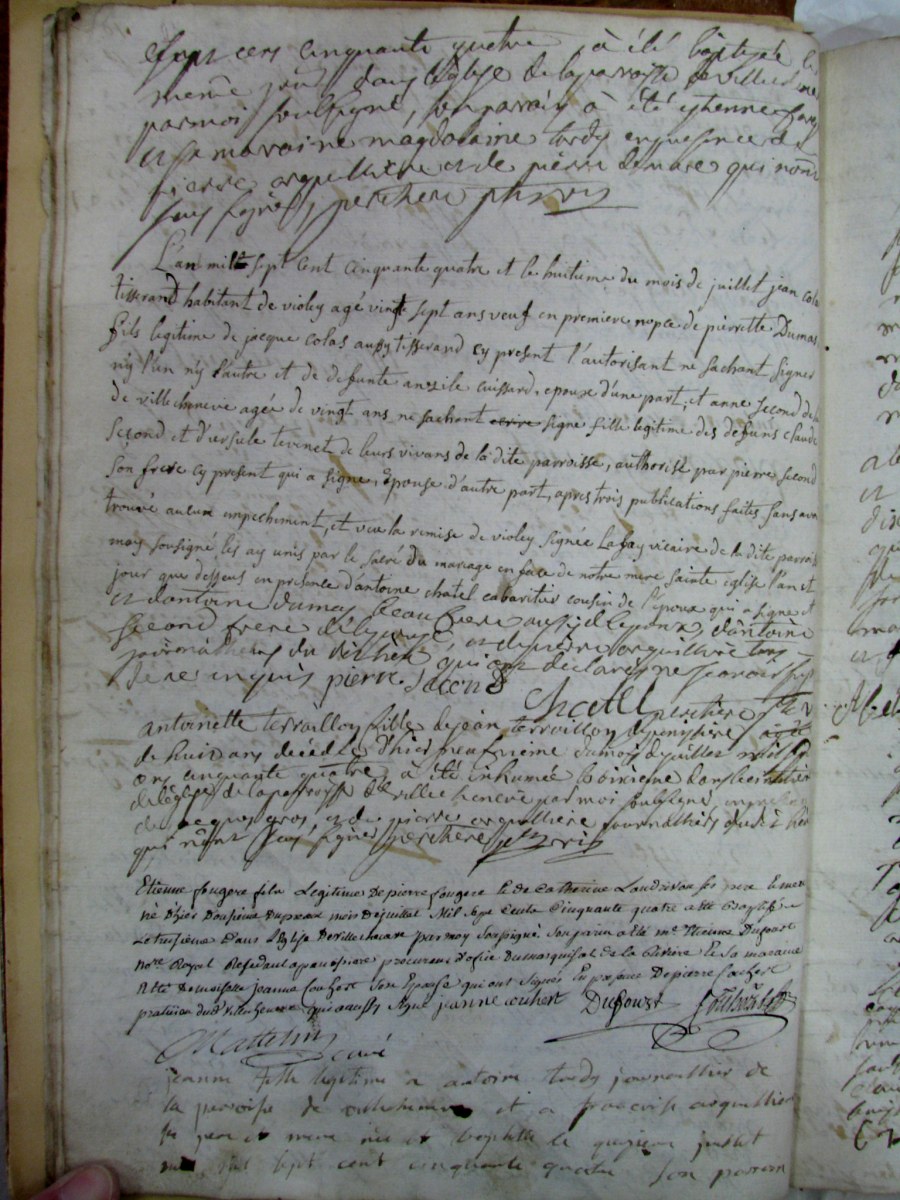 sept cens cinquante quatre, à été baptisée le
meme jour dans l'église de la parroisse de ville
par moi soussigné, son parrain à été etienne
et sa maraine magdelaine tardy en presence de
pierre arquilliere et de pierre qui n'ont
sceu signer, perchere ptre vic
L'an mille sept cent cinquante quatre et le huitieme du mois de juillet jean cola
tisserand habitant de violey agé vingt sept ans veuf en premiere nopce de pierrette Dumas
fils legitime de jacque colas aussy tisserand cy present l'autorisant ne sachant signer
n'y l'un n'y l'autre et de defunte cuissard, epoux d'une part, et anne second de
de villecheneve agée de vingt ans ne sachant ecrire signé fille legitime des defuns claude
second et d'ursule tevenet de leurs vivans de la dite parroisse, authorisé par pierre second
son frere cy present qui a signé, Epouse d'autre part, apres trois publications faites sans avoir
trouvé aucun empechement, et vue la remise de violey signée Lafay vicaire de la dite parroi
moy sousigné les ay unis par le sacré du mariage en face de notre mere sainte eglise l'an et
jour que dessus en presence d'antoine chatel cabaretier cousin de l'epoux qui a signé et
et d'antoine dumas beau frere aussi de l'epoux, d'antoine
second frere de l'epouse, et de pierre arquilliere tous
journaliers du dit lieu qui ont declaré ne scavoir signer
de ce enquis pierre second
Chatel perchere ptre v
antoinette terraillon fille de jean terraillon agée
de huit ans decedée d'hier neufvieme du mois de juillet mil sept
cens cinquante quatre, à été inhumée le dixieme dans le cimetier
de l'église de la parroisse de villecheneve par moi soussigné, en presence
de jacque gros, et de pierre arquilliere journalliers du dit lieu
qui n'ont sceu signer perchere ptre vic
Etienne fougere fils Legitime De pierre fougere Et de Catherine ses pere Et mere
né d'hier Douzieme Du preant mois De juillet Mil Sept Cents Cinquante quatre a Ete Baptisé
Le treisieme Dans L'Eglise De villecheneve par moy Soussigné Son parrin a Ete me Etienne Dufourt
nore Royal Residant a panissiere procureur d'ofice Du marquisat de la Et Sa maraine
a Ete Demoiselle jeanne couhert Son Epouse qui ont Signés En presence De pierre couhert
praticien du dit villecheneve qui aussy Signé jeanne couhert Dufourt
Mattelin curé
jeanne fille legitime a antoine tardy journallier de
la paroisse de villecheneve et a francoise arquilliere
ses pere et mere née et baptisée le juillet
mil sept cent cinquante quatre son parrin